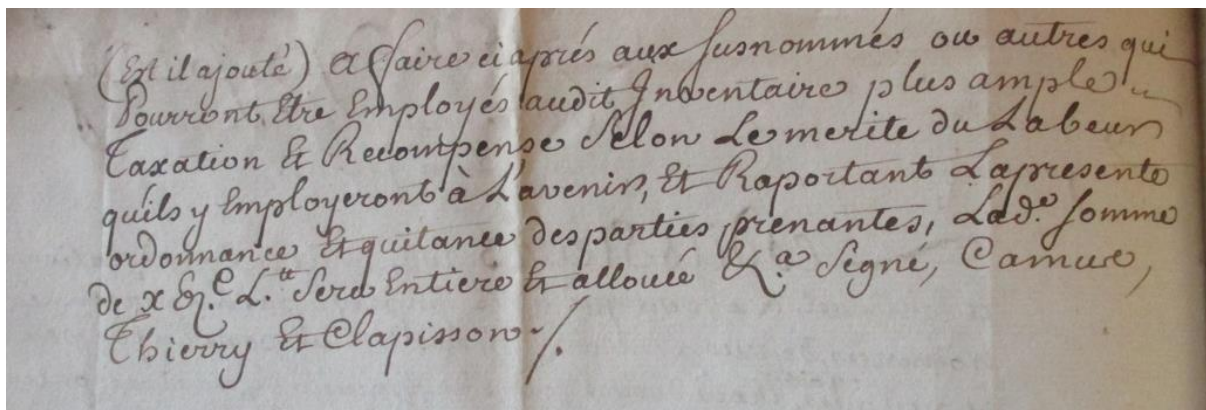 (Est il ajouté) a ffaire ci aprés aux susnommés ou autres qui
Pourront Etre Employés audit Inventaire plus ample
Taxation Et Recompense Selon Le merite du Labeur
quils y Employeront à L'avenir, Et Raportant Lapresente
ordonnance Et quitance des parties prenantes, Lad.e somme
de x L.tt Sera Entiere Et allouée &.a Signé, Camus,
Thierry Et Clapisson ./.